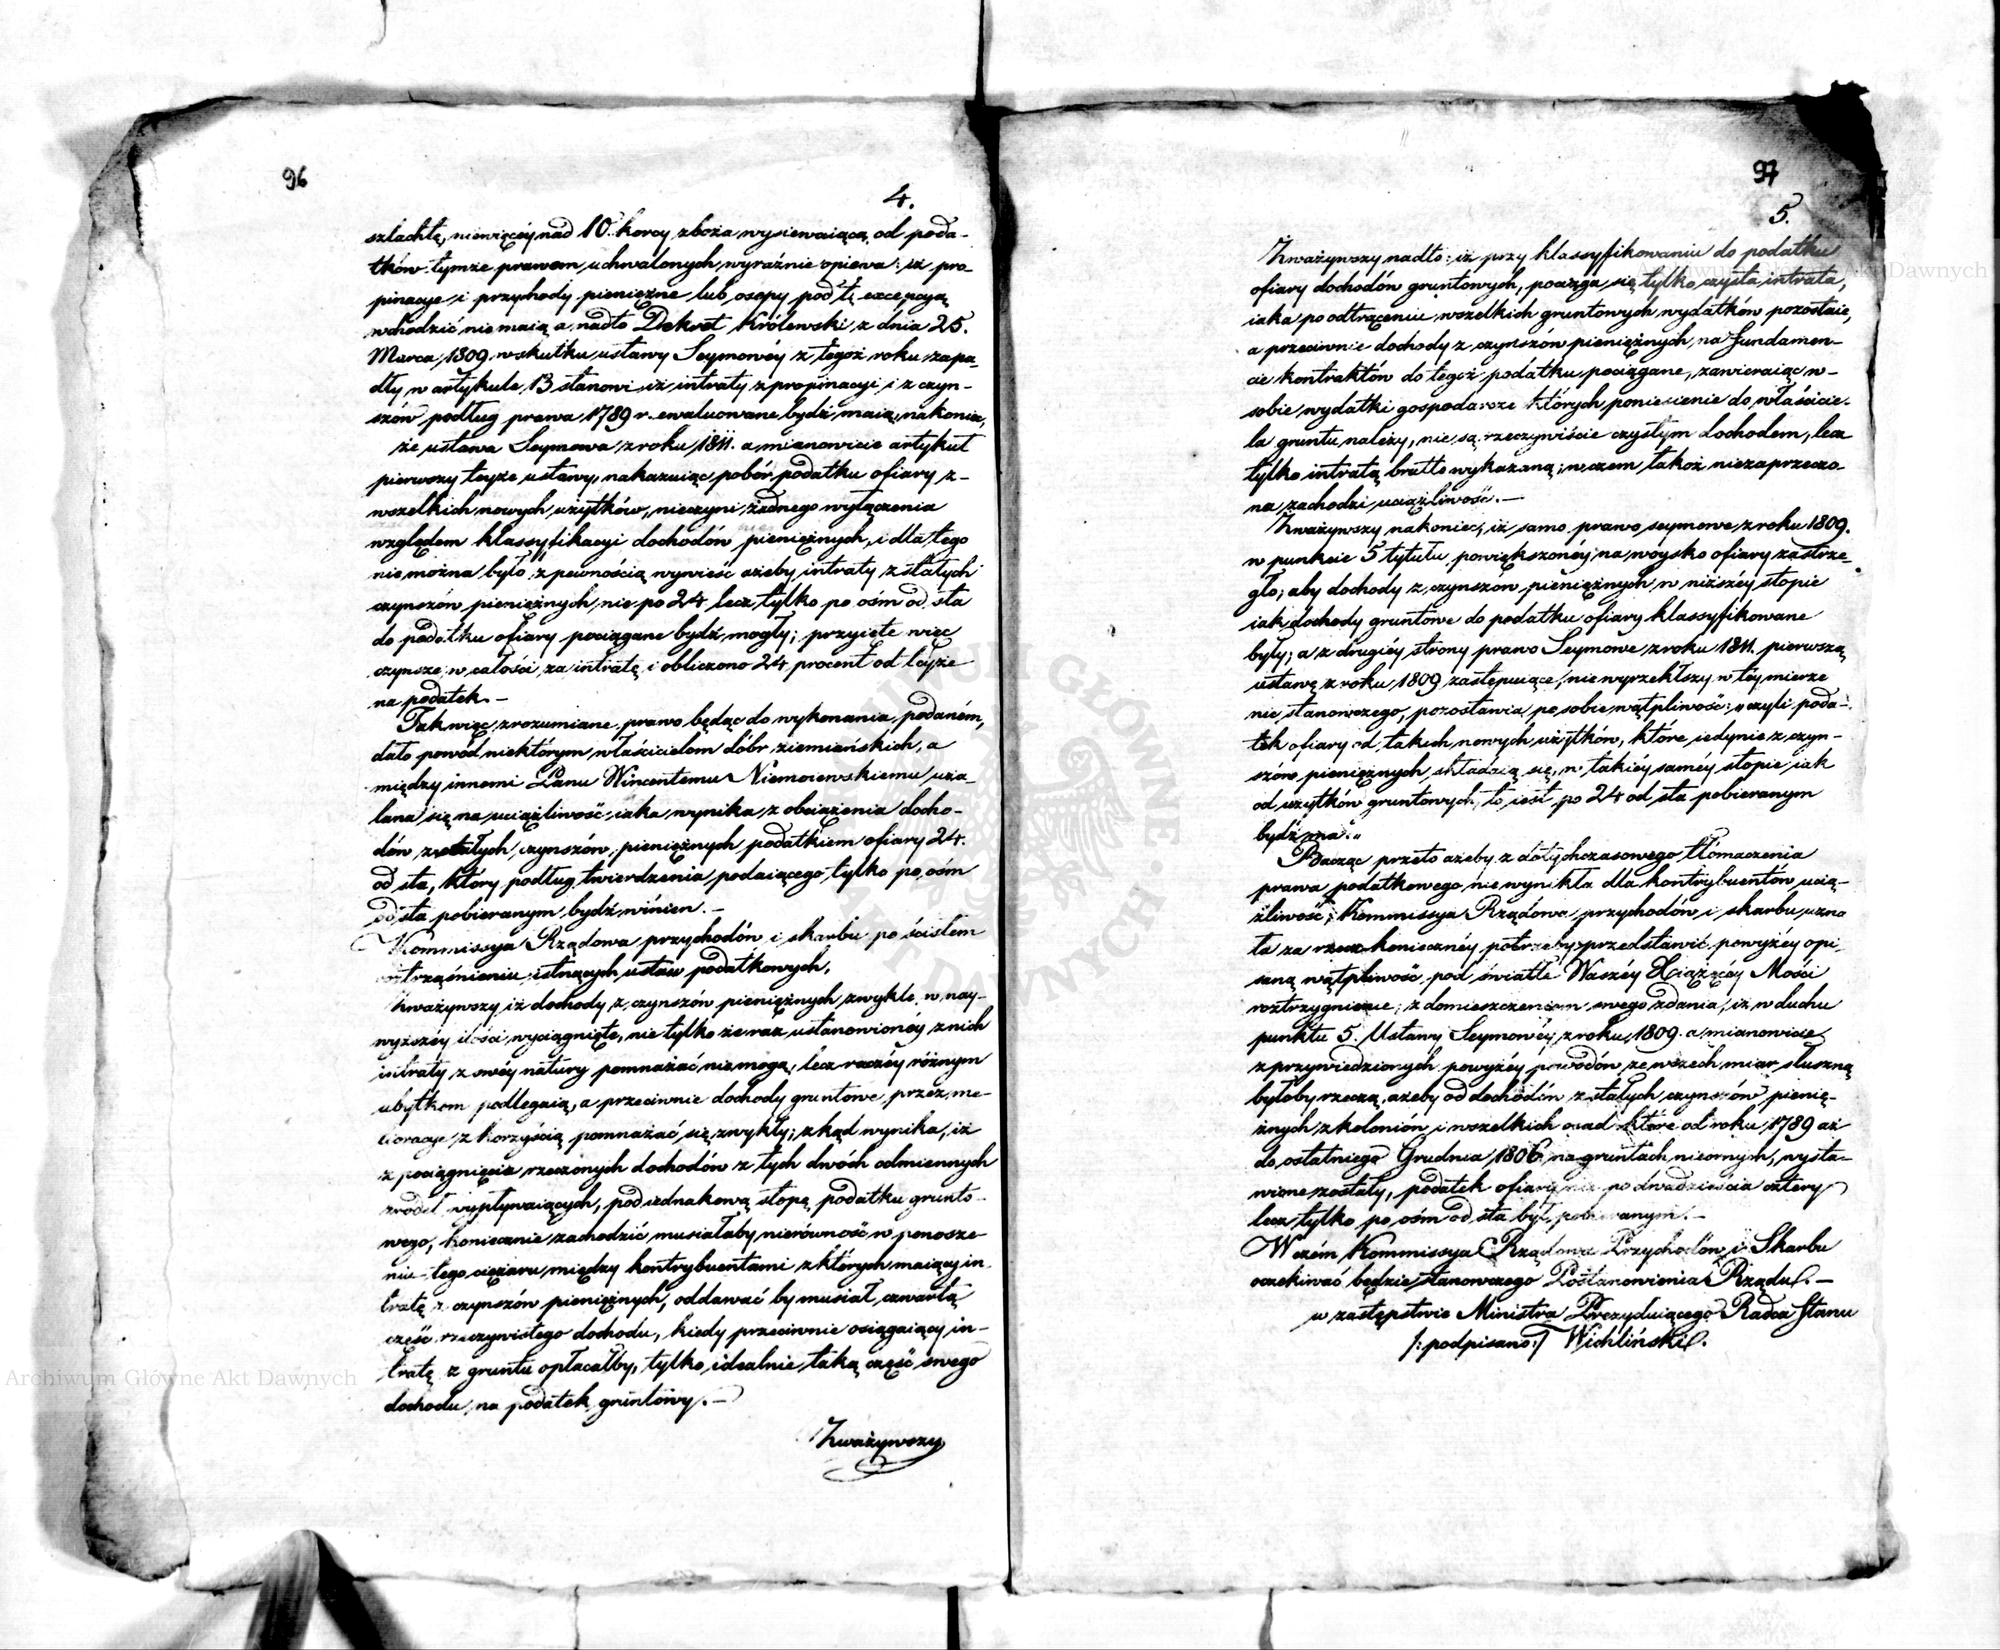 96
4.
szlachtę, niewięcéy nad 10. korcy zboża wysiewaiącą, od poda-
tków tymże prawem uchwalonych, wyraźnie opiewa: iż pro-
pinacye i przychody pieniężne lub osepy pod tę excepcyą
wchodzić nie maią a nadto Dekret Królewski z dnia 25.
Marca 1809 w skutku ustawy Seymowéy z tegoż roku zapa-
dły w artykule 13 stanowi iż intraty z propinacyi i z czyn-
szów podług prawa 1789 r. ewaluowane bydź maią, nakoniec,
że ustawa Seymowa z roku 1811. a mianowicie artykuł
pierwszy teyże ustawy, nakazuiąc pobór podatku ofiary z-
wszelkich nowych użytków, nieczyni żadnego wyłączenia
względem klassyfikacyi dochodów pieniężnych, i dla tego
nie można było z pewnością wywieść ażeby intraty z stałych
czynszów pieniężnych, nie po 24 lecz tylko po ośm od sta
do podatku ofiary pociągane bydź mogły; przyięte więc
czynsze w całości za intratę i obliczono 24 procent od teyże
na podatek. –
Tak więc zrozumiane prawo będąc do wykonania podaném,
dało powód niektórym właścicielom dóbr ziemieńskich, a
między innemi Panu Wincentemu Niemoiewskiemu uża-
lana się na uciążliwość iaka wynika z obciążenia docho-
dów z stałych czynszów pieniężnych podatkiem ofiary 24.
od sta, który podług twierdzenia podaiącego tylko po ośm
od sta pobieranym bydź winien. –
Kommissya Rządowa przychodów i skarbu po ścisłem
roztrząśnieniu istnących ustaw podatkowych,
Zważywszy iż dochody z czynszów pieniężnych zwykle w nay-
wyższéy ilości wyciągnięte, nie tylko że raz ustanowionéy z nich
intraty z swéy natury pomnażać nie mogą, lecz raczéy różnym
ubytkom podlegaią, a przeciwnie dochody gruntowe przez me-
lioracye z korzyścią pomnażać się zwykły; zkąd wynika, iż
z pociągnięcia rzeczonych dochodów z tych dwóch odmiennych
źródeł wypływaiących, pod iednakową stopę podatku grunto-
wego, koniecznie zachodzić musiałaby nierówność w ponosze-
niu tego ciężaru między kontrybuentami z których maiący in-
tratę z czynszów pieniężnych, oddawać by musiał czwartą
część rzeczywistego dochodu, kiedy przeciwnie osiągaiący in-
tratę z gruntu opłacałby tylko idealnie taką część swego
dochodu na podatek gruntowy. –
Zważywszy
97
5.
Zważywszy nadto: iż przy klassyfikowaniu do podatku
ofiary dochodów gruntowych, pociąga się tylko czysta intrata,
iaka po odtrąceniu wszelkich gruntowych wydatków pozostaie,
a przeciwnie dochody z czynszów pieniężnych, na fundamen-
cie kontraktów do tegoż podatku pociągane, zawieraiąc w-
sobie wydatki gospodarcze których poniesienie do właścicie-
la gruntu należy, nie są rzeczywiście czystym dochodem, lecz
tylko intratą brutto wykazaną; w czem takoż niezaprzeczo-
na zachodzi uciążliwość. –
Zważywszy nakoniec, iż samo prawo seymowe z roku 1809.
w punkcie 5 tytułu powiększonéy na woysko ofiary zastrze-
gło, aby dochody z czynszów pieniężnych w niższéy stopie
iak dochody gruntowe do podatku ofiary klassyfikowane
były; a z drugiéy strony prawo Seymowe z roku 1811. pierwszą
ustawę z roku 1809 zastępuiące, nie wyrzekłszy w téy mierze
nic stanowczego, pozostawia po sobie wątpliwość: „czyli poda-
tek ofiary od takich nowych użytków, które iedynie z czyn-
szów pieniężnych składaią się, w takiéy saméy stopie iak
od użytków gruntowych, to iest po 24 od sta pobieranym
bydź ma."
Bacząc przeto ażeby z dotychczasowego tłómaczenia
prawa podatkowego nie wynikła dla kontrybuentów ucią-
żliwość; Kommissya Rządowa przychodów i skarbu, uzna-
ła za rzecz koniecznéy potrzeby przedstawić powyżéy opi-
saną wątpliwość pod światłe Waszéy Xiążęcéy Mości
roztrzygnienie; z domieszczeniem swego zdania, iż w duchu
punktu 5. Ustawy Seymowéy z roku 1809. a mianowicie
z przywiedzionych powyżéy powodów ze wszech miar słuszną
byłoby rzeczą, ażeby od dochodów z stałych czynszów pienię-
żnych z kolonión i wszelkich osad które od roku 1789 aż
do ostatniego Grudnia 1806 na gruntach nieornych, wysta-
wione zostały, podatek ofiary nie po dwadzieścia cztery
lecz tylko po ośm od sta był pobieranym. –
W czém Kommissya Rządowa Przychodów i Skarbu
oczekiwać będzie stanowczego Postanowienia Rządu. –
w zastępstwie Ministra Prezyduiącego Radca Stanu
/: podpisano :/ Wichliński.
Archiwum Główne Akt Dawnych